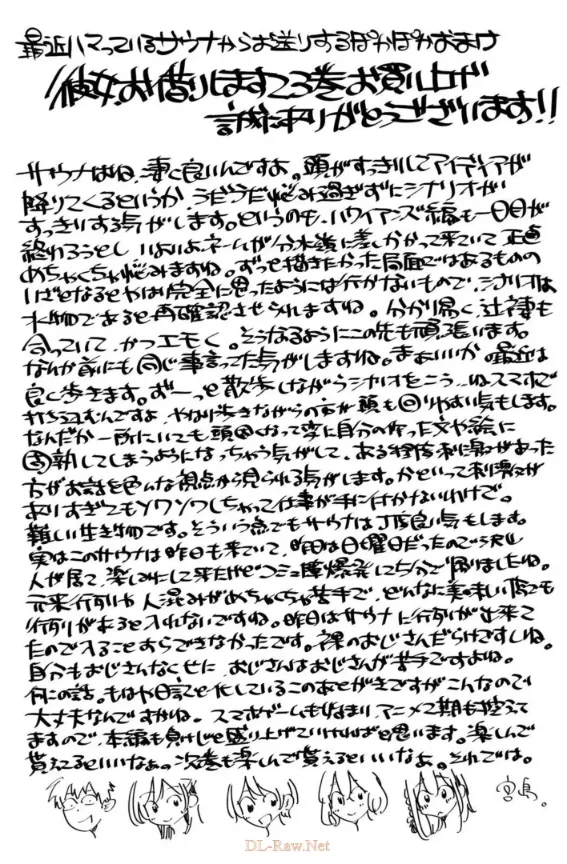 最近ハマっているサウナからお送りするぽかぽかおまけ
彼女、お借りします23巻お買い上げ
誠にありがとうございます!!
サウナはね、凄く良いんですよ。頭がすっきりしてアイディアが
降りてくるというか、うだうだ悩み過ぎずにシナリオが
すっきりする気がします。というのも、ハワイアンズ編も一日目が
終わろうとし、いよいよネームが分水嶺に差しかかって来ていて正直
めちゃくちゃ悩みますね。ずっと描きたかった局面ではあるものの
いざとなるとやはり完全に思ったようには行かないもので、シナリオは
水物であると再確認させられますね。分かり易く、辻褄も
合っていて、かつエモく。そうなるようにこの先も頑張ります。
なんか前にも同じ事言ってた気がしますね。まぁいいか。最近は
良く歩きます。ずーっと散歩しながらシナリオをこう、ねスマホで
打ち込むんですよ。やはり歩きながらの方が頭も回りやすい気もします。
なんだか一所にいても頭固くなって変に自分の作った文や絵に
固執してしまうようになっちゃう気がして、ある程度刺激があった
方がお話を色んな視点から見られる気がします。かといって刺激が
ありすぎてもソワソワしちゃって仕事が手に付かないわけで。
難しい生き物です。そういう点でもサウナは丁度良い気もします。
実はこのサウナは昨日も来ていて、昨日は日曜日だったので沢山
人が居て、楽しみにして来たけどコミュ障爆発に5分で帰りましたね。
元来行列や人混みがめちゃくちゃ苦手で、どんなに美味しい店でも
行列があると入れないですね。昨日はサウナに行列が出来て
たので入ることすらできなかったです。裸のおじさんだらけですしね。
自分もおじさんなくせに、おじさんはおじさんが苦手ですよね。
何の話。もはや日記と化しているこのあとがきですがこんなので
大丈夫なんですかね。スマホゲームも始まり、アニメ2期も控えて
ますので、本編も負けじと盛り上げていければと思います。楽しんで
貰えるといいなぁ。次巻も楽しんで貰えるといいなぁ。それでは。
宮島。
DL-Raw.Net